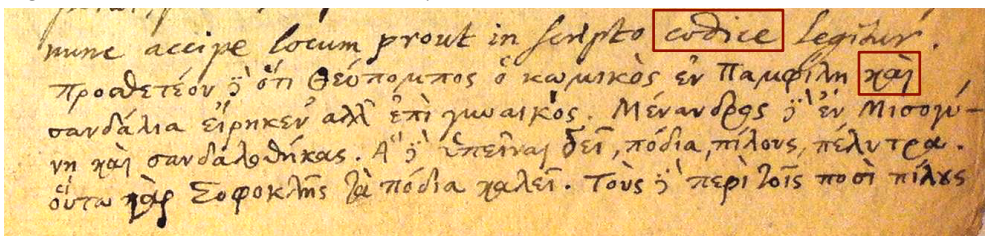 nunc accipe locum prout in scripto codice legitur.
προσθετέον δ' ὅτι Θεύπομπος ὁ κωμικὸς ἐν Παμφίλῃ καὶ
σανδάλια εἴρηκεν ἀλλ' ἐπὶ γυναικὸς. Μένανδρος δ' ἐν Μισογύ-
νῃ καὶ σανδαλοθήκας. Ἃ δ' ὑπεῖναι δεῖ, πόδια, πίλους, πέλυτρα.
οὕτω γὰρ Σοφοκλῆς τὰ πόδια καλεῖ. Τοὺς δ' περὶ τοῖς ποσὶ πίλους